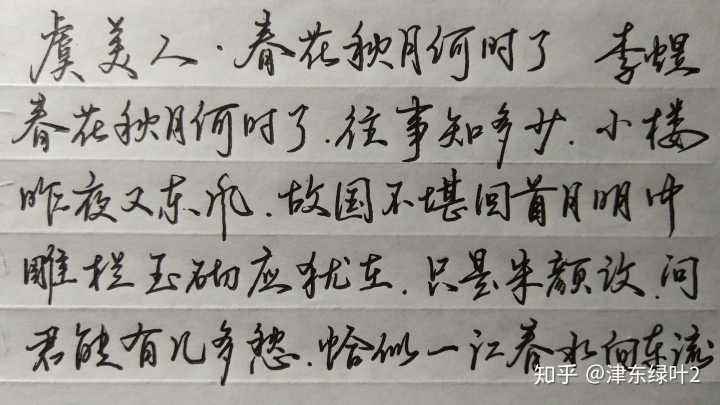 虞美人·春花秋月何时了 李煜
春花秋月何时了.往事知多少.小楼
昨夜又东风.故国不堪回首月明中
雕栏玉砌应犹在.只是朱颜改.问
君能有几多愁.恰似一江春水向东流
知乎 @津东绿叶2